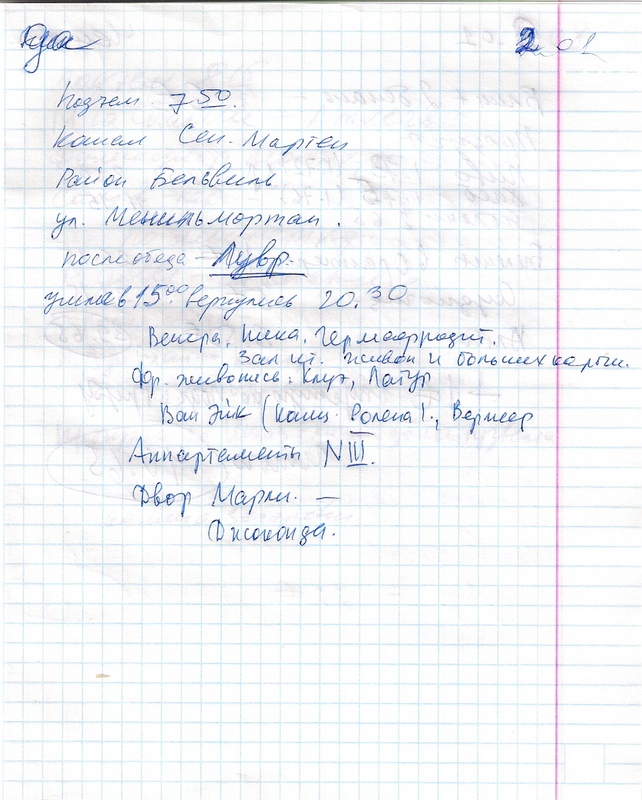 2.01
Подъем 7 50.
Канал Сен. Мартен
Район Бельвиль
ул. Менильмортан.
после обеда - Лувр.
ушли в 15.00 вернулись 20.30
Венера, Ника, Гермафродит.
Зал ит. живоп и больших карти.
Фр. живопись: Клуэ, Латур
Ван Эйк (Канц. Ролена!., Вермеер
Аппартаменты NIII.
Двор Марли. —
Джоконда.